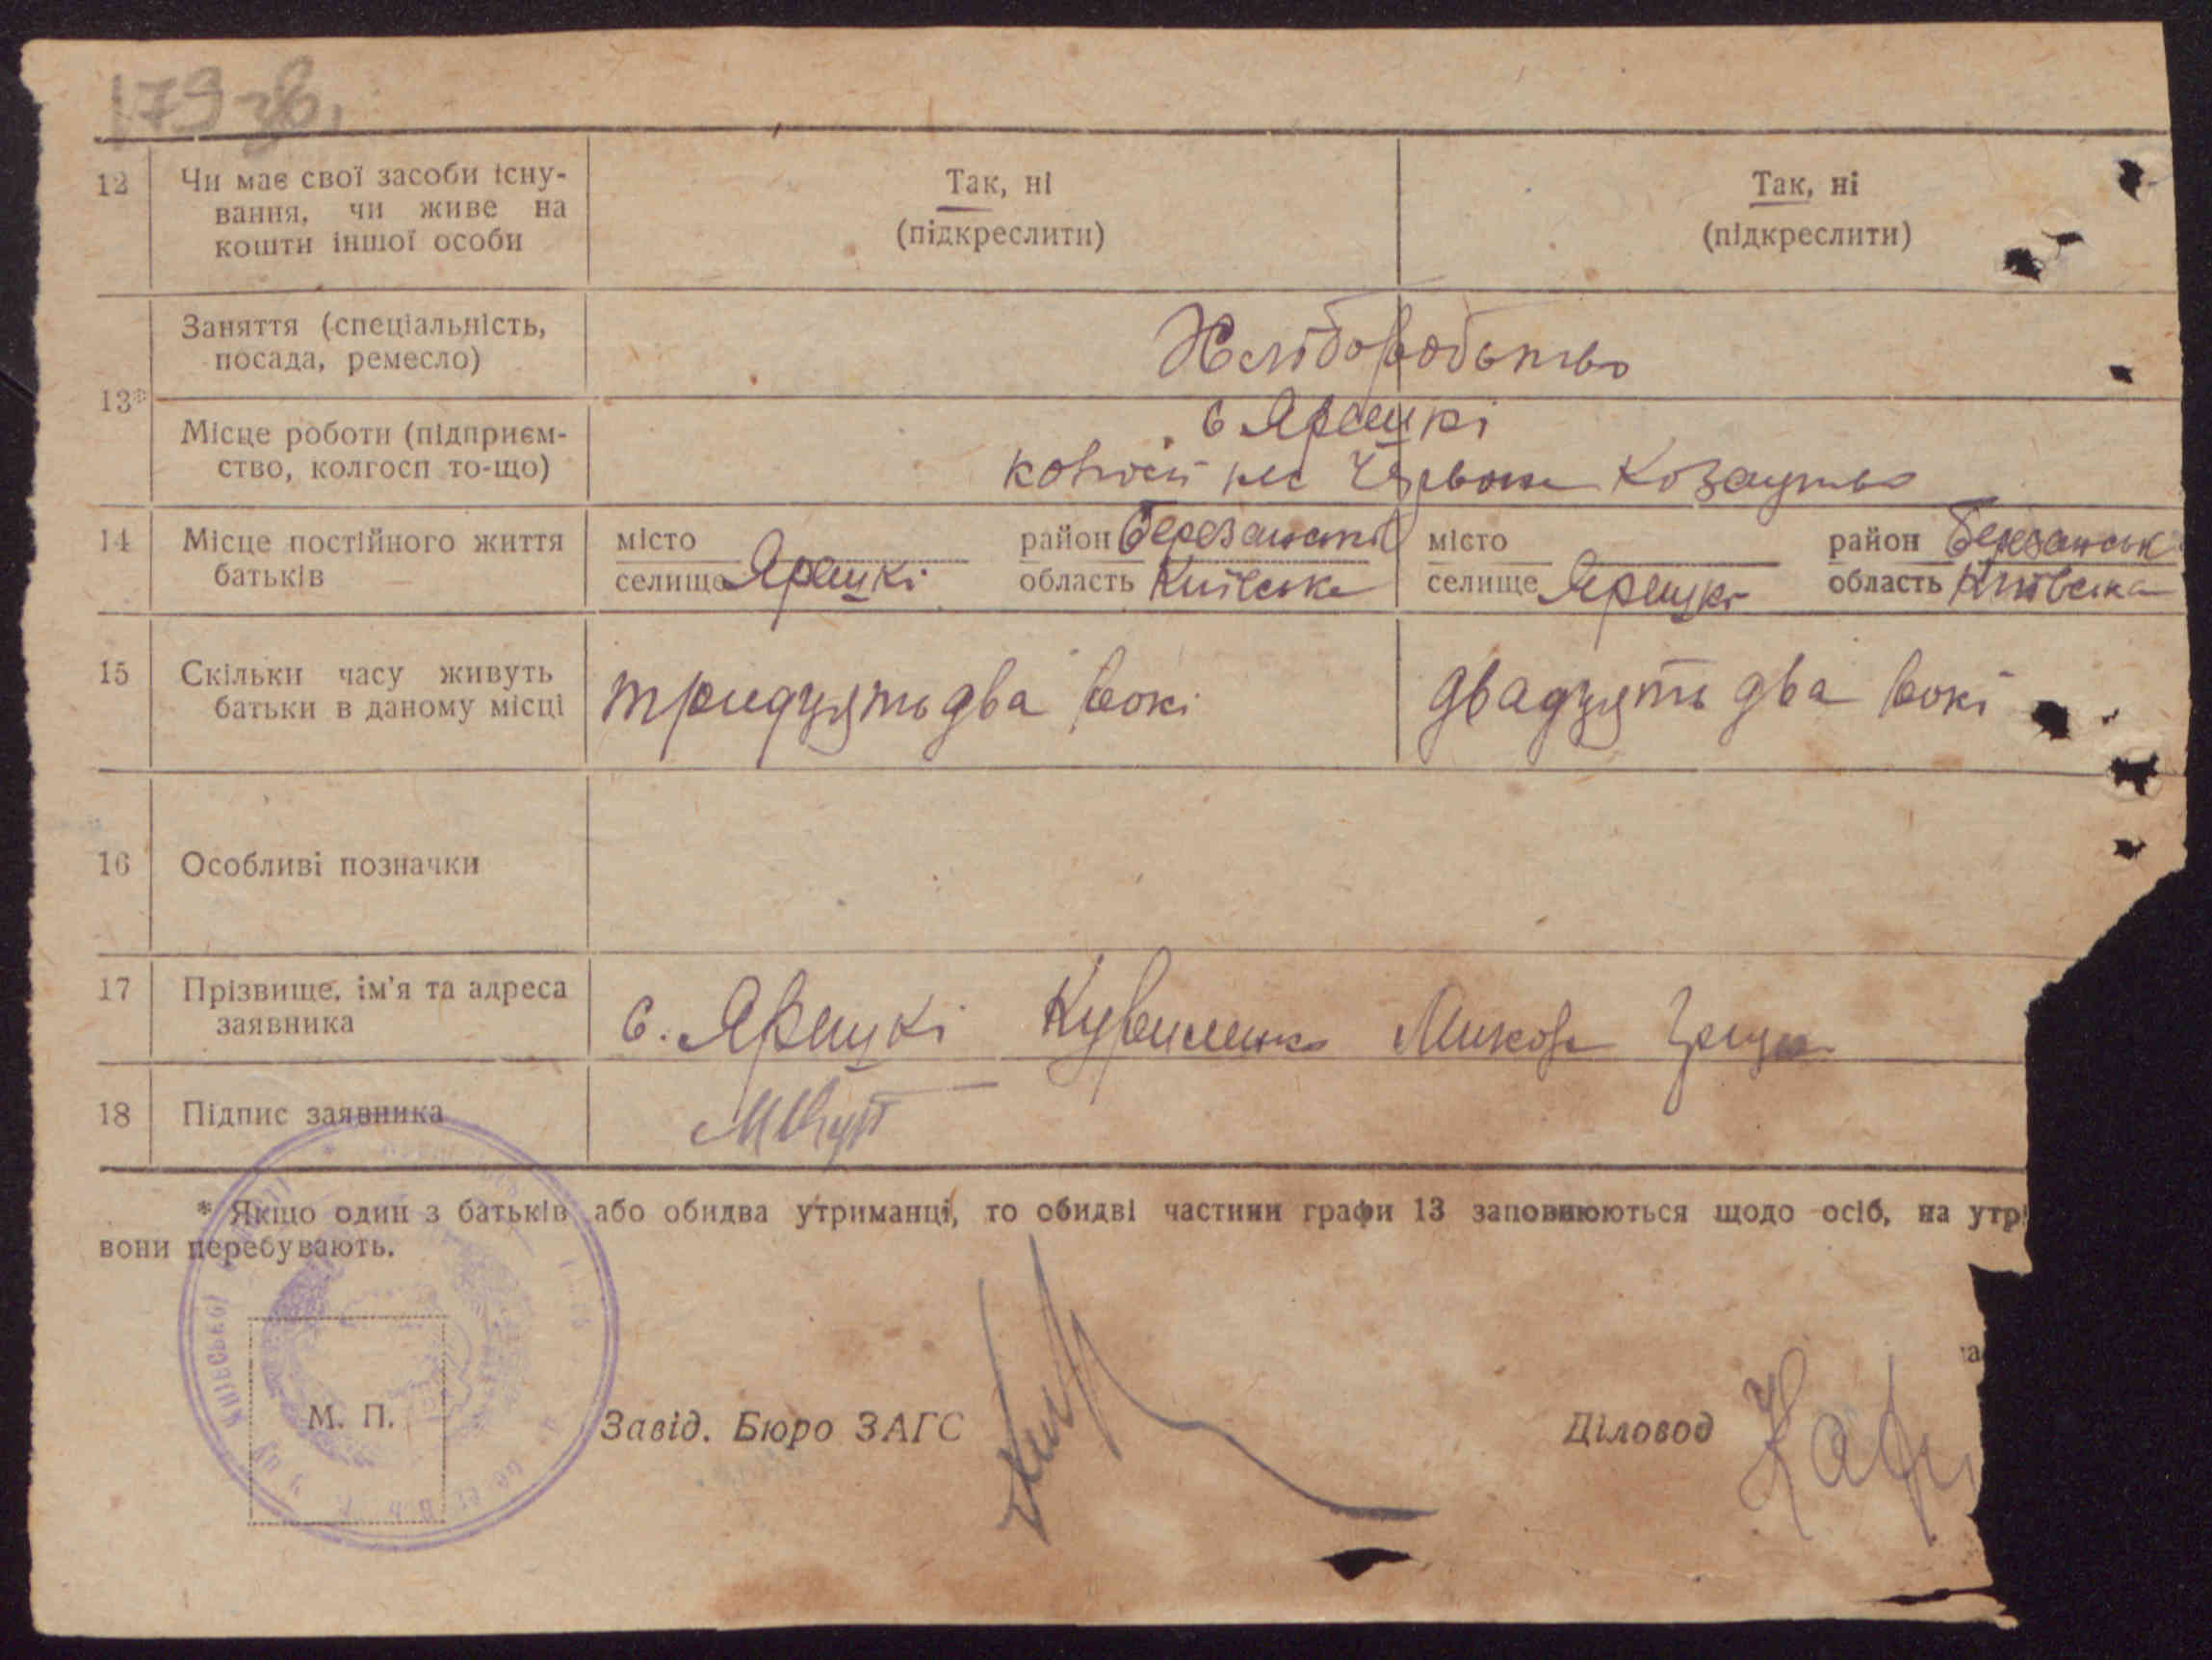 179 зв.
12
Чи має свої засоби існу-
вання, чи живе на
кошти іншої особи
Так, ні
(підкреслити)
Так, ні
(підкреслити)
13*
Заняття (спеціальність,
посада, ремесло)
Хліборобство
Місце роботи (підприєм-
ство, колгосп то-що)
с Ярешкі
Червоне Козацтво
14
Місце постійного життя
батьків
місто
селище Ярешкі
район Березанськ
область Київська
місто
селище Ярешкі
район Березанськ
область Київська
15
Скільки часу живуть
батьки в даному місці
тридцять два рокі
двадцять два рокі
16
Особливі позначки
17
Прізвище, ім'я та адреса
заявника
с. Ярешкі
18
Підпис заявника
* Якщо один з батьків або обидва утриманці, то обидві частини графи 13 заповнюються щодо осіб, на утр
вони перебувають.
Київської
М. П.
Завід. Бюро ЗАГС
Діловод